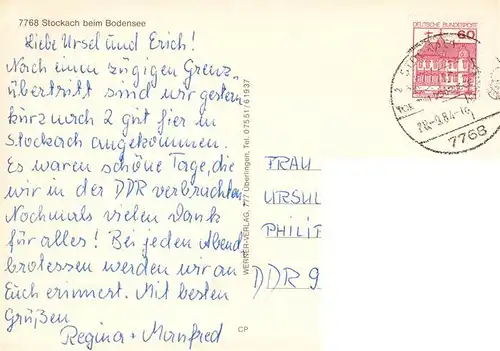 7768 Stockach beim Bodensee
Liebe Ursel und Erich!
Nach einem zügigen Grenz-
übertritt sind wir gestern
kurz nach 2 gut hier in
Stockach angekommen.
Es waren schöne Tage, die
wir in der DDR verbrachten.
Nochmals vielen Dank
für alles! Bei jedem Abend
brotessen werden wir an
Euch erinnert. Mit besten
Grüßen
Regina + Manfred
WERNER-VERLAG, 777 Überlingen, Tel. 07551/61937
CP
DEUTSCHE BUNDESPOST
60
-9.84-16
7768
FRAU
URSUL
PHILIP
DDR 9